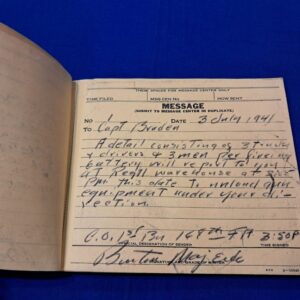 THESE SPACES FOR MESSAGE CENTER ONLY
TIME FILED MSG CEN No. HOW SENT
MESSAGE
(SUBMIT TO MESSAGE CENTER IN DUPLICATE)
No 1 DATE 3 July 1941
TO Capt Braden
A detail consisting of 3 trucks
& drivers & 3 men per firing
battery will report to you
at Regtl warehouse at
P.m. this date to unload gun
equipment under your di-
rection.
C.O. 1st Bn 168th FA 2:50P
OFFICIAL DESIGNATION OF SENDER
Maj